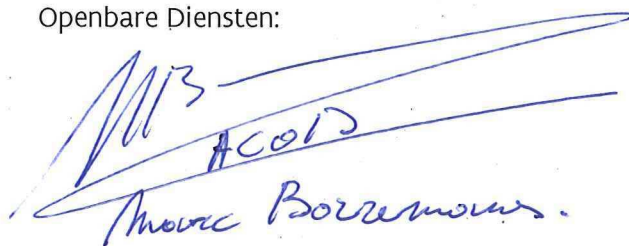 Openbare Diensten:
MB
ACOD
Marc Borremans.